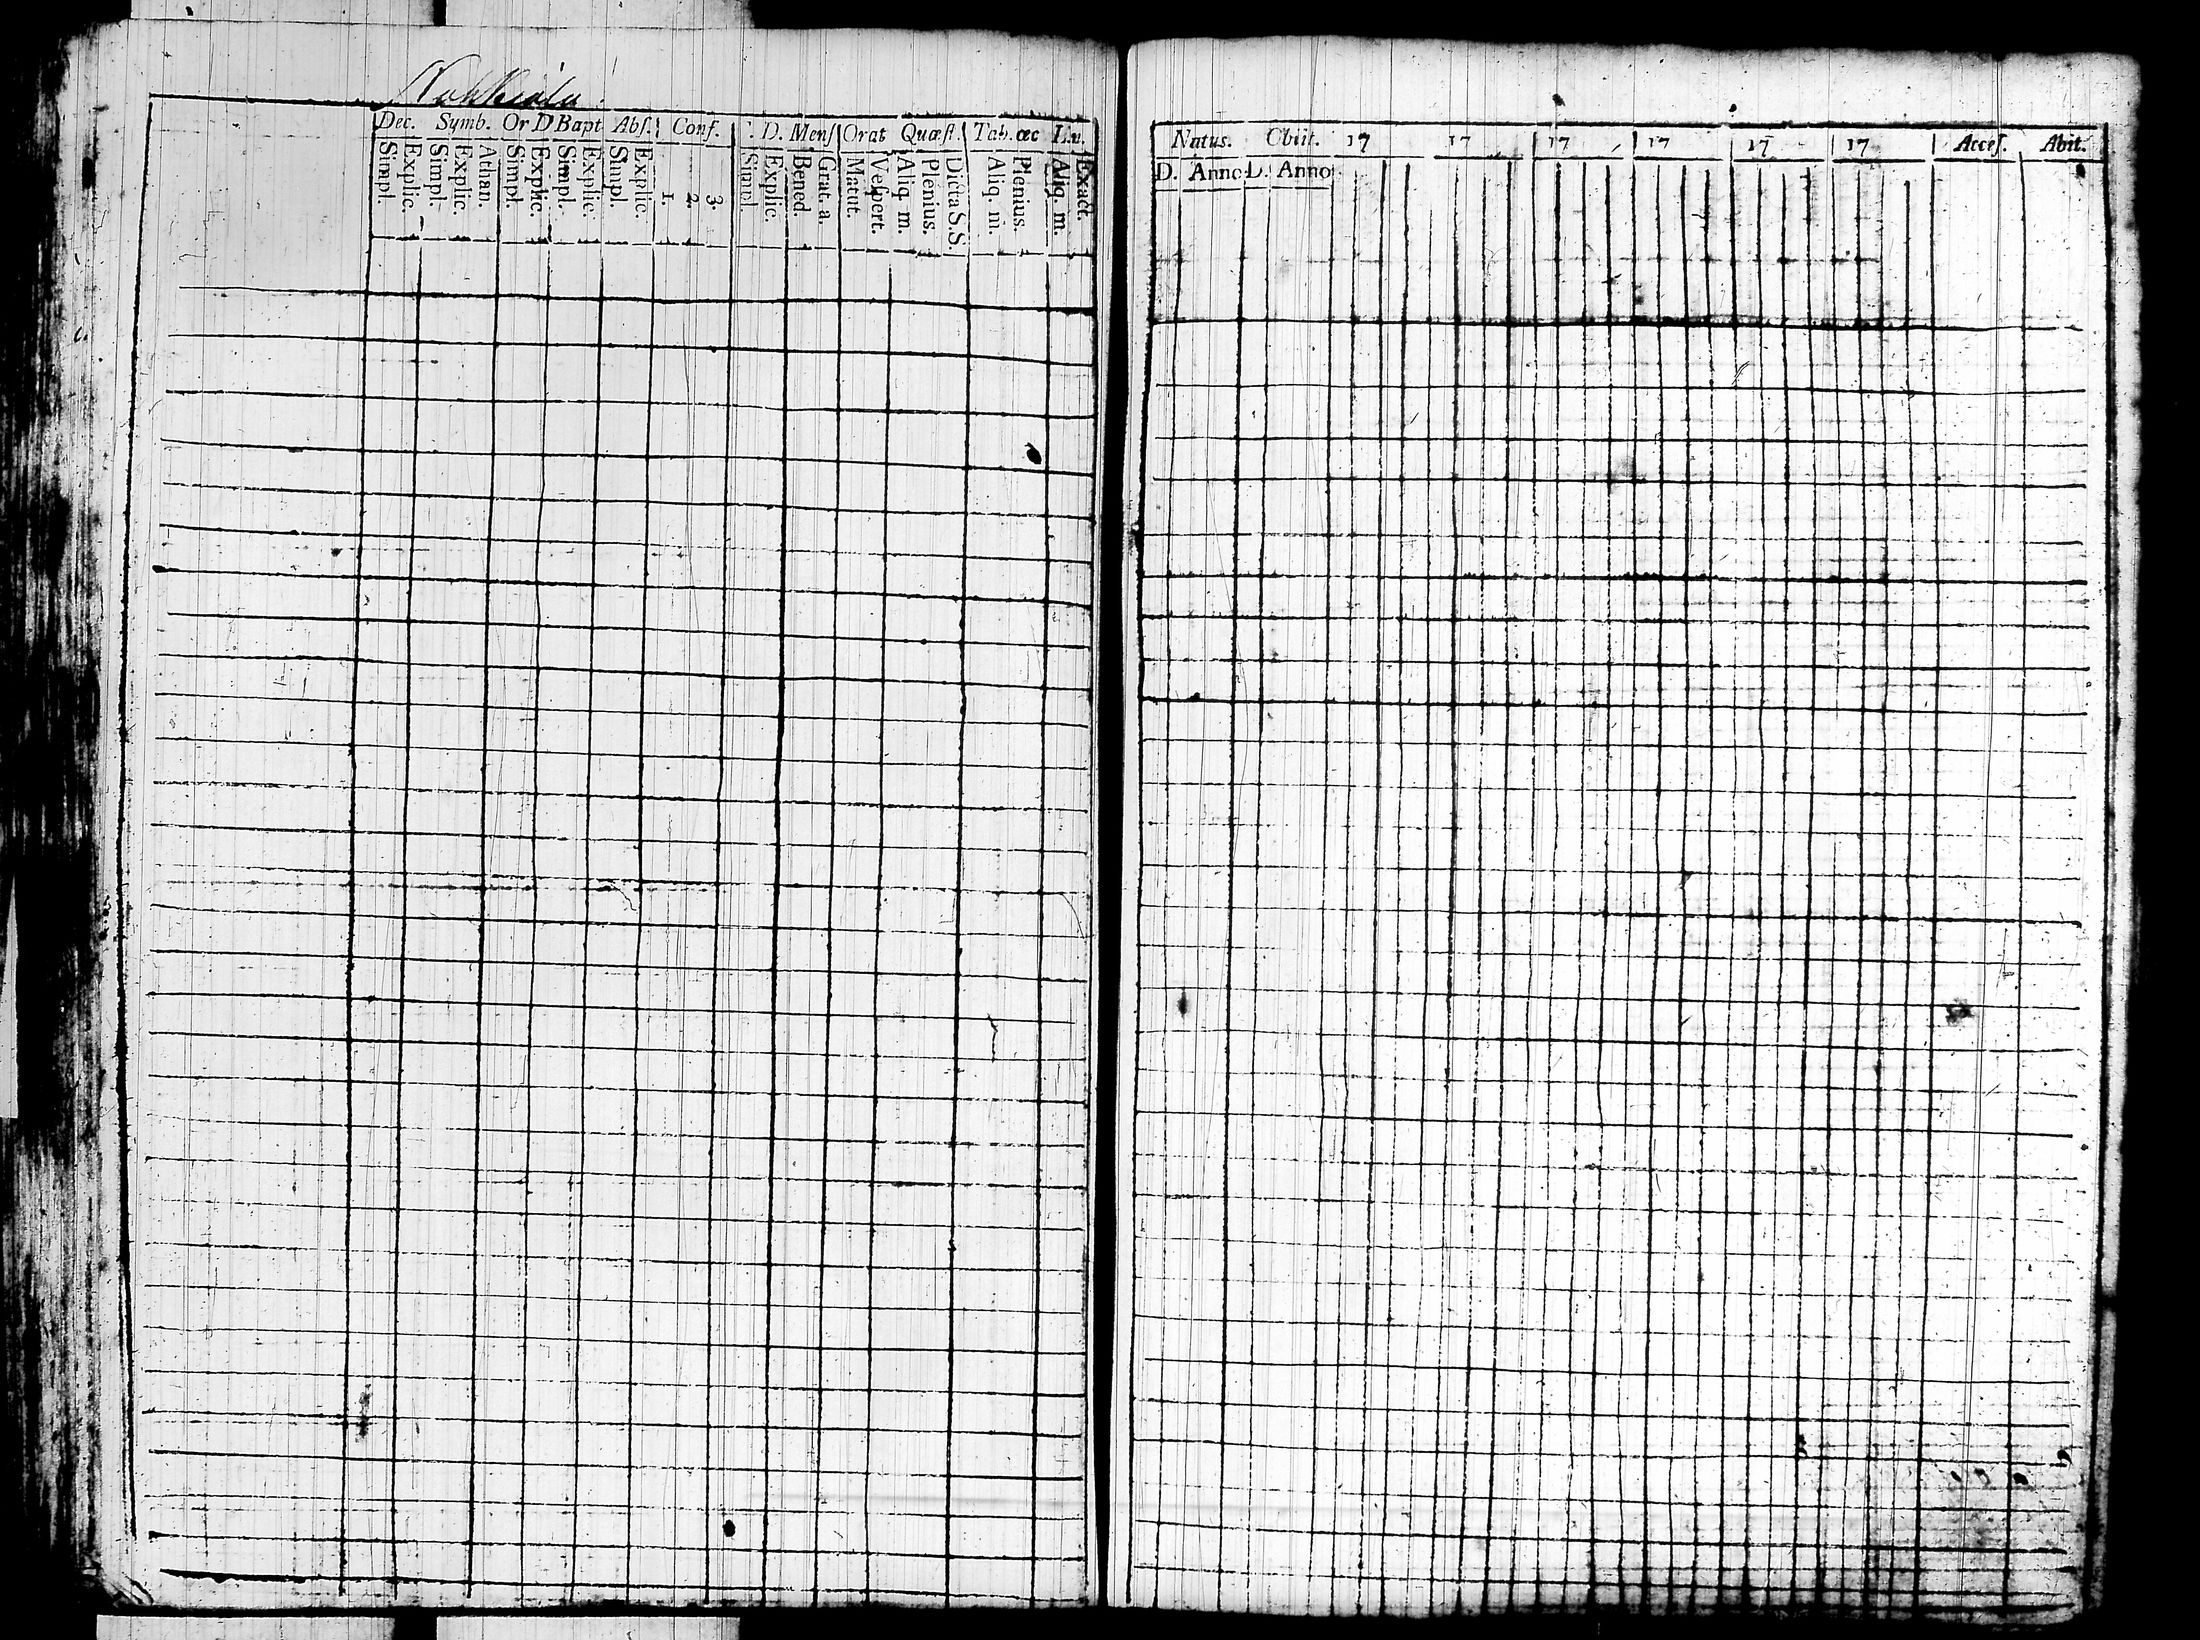 Dec. Symb. Or D Bapt Abſ. Conf. D. Menſ Orat Quæſt Tab. œc Lu.
Simpl. Explic. Simpl. Explic. Athan. Simpl. Explic. Simpl. Explic. Simpl. Explic. 1. 2. 3. Simpl. Explic. Bened. Grat. a. Matut. Veſpert. Aliq. m. Plenius. Dicta S.S. Aliq. m. Plenius. Aliq. m. Exact.
Natus. Obiit. 17 17 17 17 17 17 Acceſ. Abit.
D. Anno D. Anno